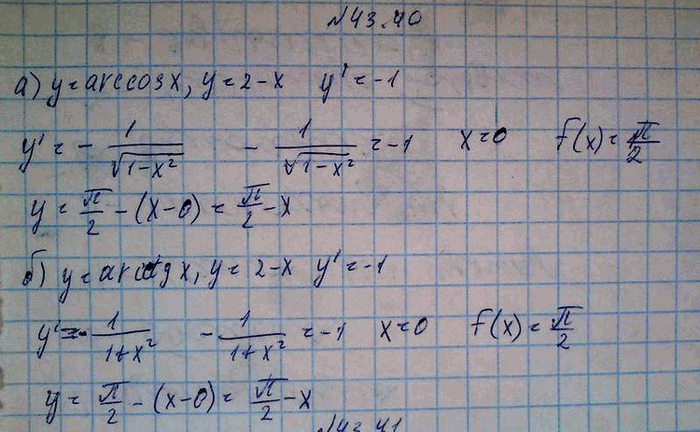 №43.40
а) y=arccosx, y=2-x y'=-1
y'=-1/√(1-x²) -1/√(1-x²)=-1 x=0 f(x)=π/2
y=π/2-(x-0)=π/2-x
б) y=arcctgx, y=2-x y'=-1
y'=-1/(1+x²) -1/(1+x²)=-1 x=0 f(x)=π/2
y=π/2-(x-0)=π/2-x
№43.41